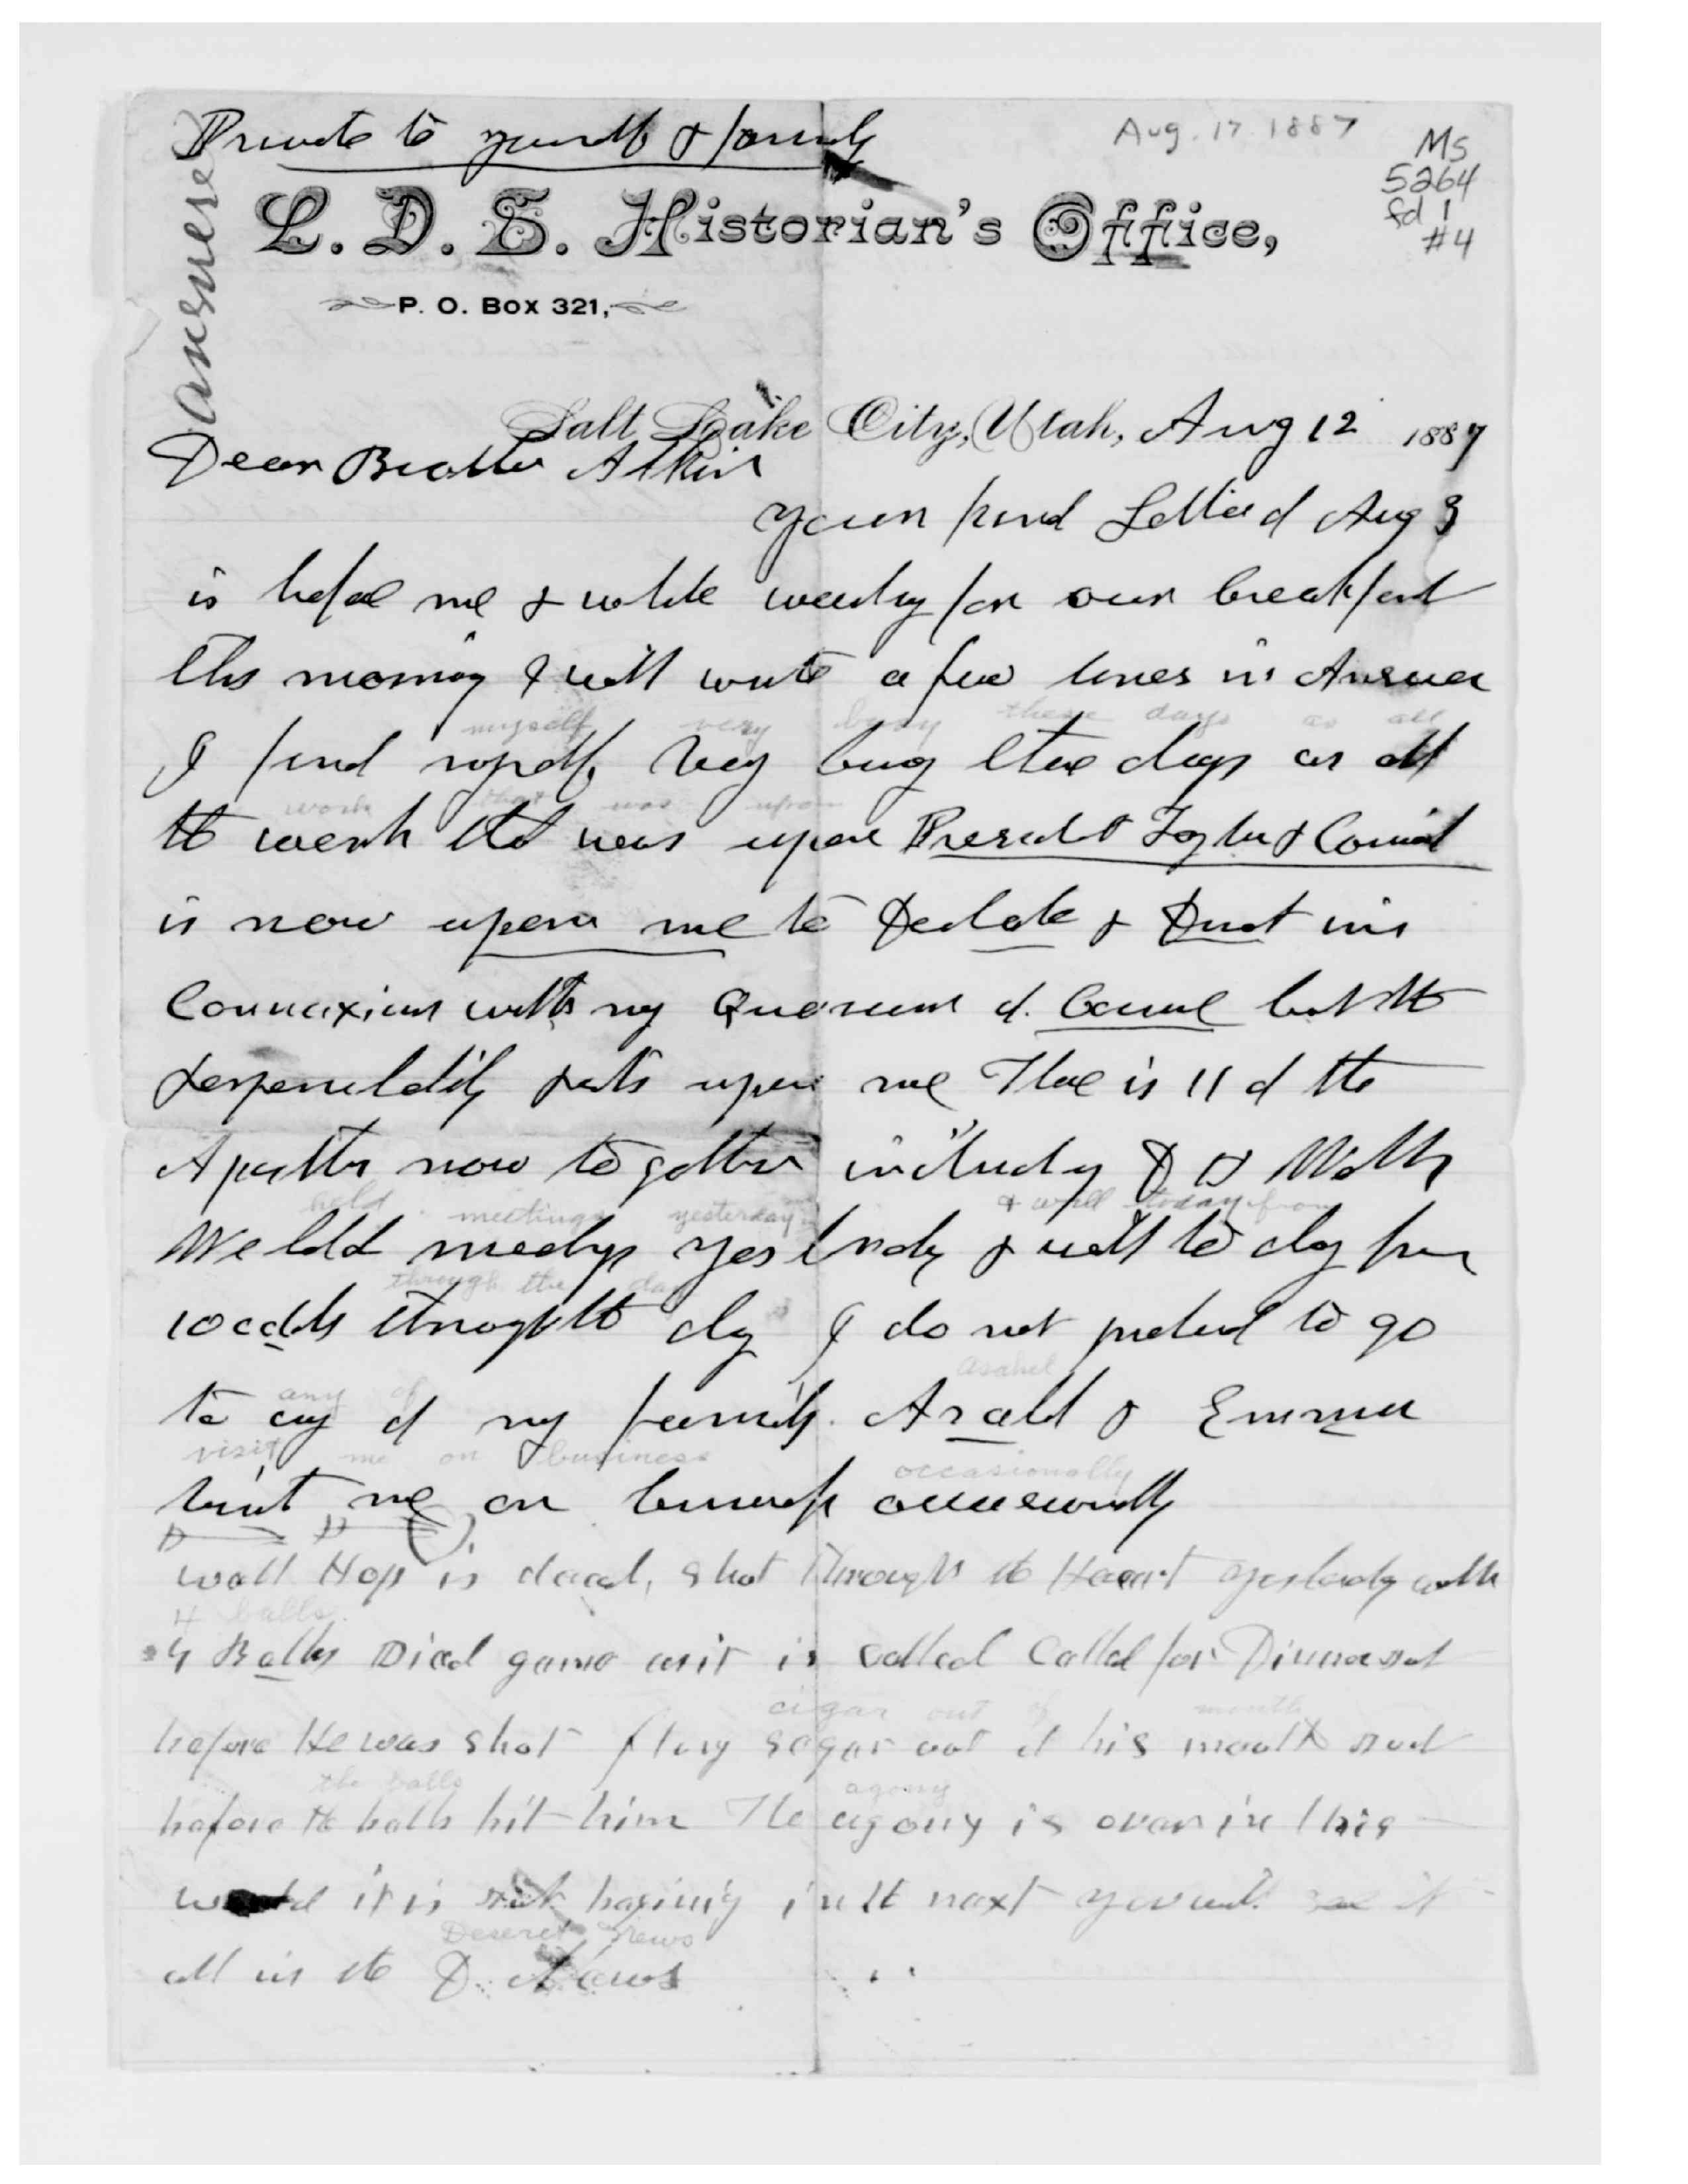 Private to yourself & family
Aug. 17 1887
Ms
5264
fd 1
#4
answered
L. D. S. Historian's Office,
P. O. Box 321,
Salt Lake City, Utah, Aug 12 1887
Dear Brother Atkin
Your kind Letter of Aug 3
is before me & while waiting for our breakfast
this morning I will write a few lines in Answer
myself very busy these days as all
I find myself very busy these days as all
work that was upon
the work that was upon President Taylor & Council
is now upon me to Dictate & Direct in
Connexion with my Quorum of Council but the
responsibility rests upon me There is 11 of the
Apostles now together including D H Wells
held meetings yesterday & will today from
We held meetings yesterday & will to day from
through the day
10 oclok through the day I do not pretend to go
any of Asahel
to any of my family. Asahel & Emma
visit me on business occasionally
visit me on business occasionally
D H
Watt Hop is dead, Shot through the Heart yesterday with
4 balls
4 Balls Died game as it is called Called for Dinner just
cigar out of mouth
before He was shot flung segar out of his mouth just
the balls agony
before the balls hit him The agony is over in this
world it is just begining in the next you will see it
Deseret News
all in the D. News